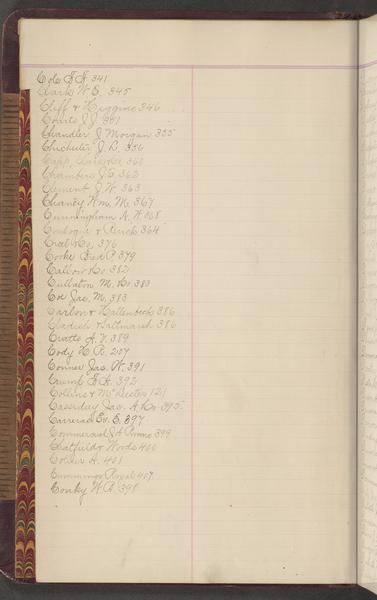 Cole E. F. 341
Clark W. E. 345
Cliff & Higgins 346
Coarts J. J. 351
Chandler J. Morgan 355
Chichester J. L. 356
Capp, 360
Chambers J. E. 362
Clement J. W. 363
Chaney Wm. M. 367
Cunningham A. W. 368
& Birch 364
Co. 376
Cooke Fred P. 379
Co. 382
M. Co. 383
Coe Jas. M. 383
Carlson & Hallenbeck 386
Cladish & Saltmarsh 386
Cratte A. V. 389
Cody H. R. 207
Conner Jas. W. 391
Crump E. A. 392
Collins & McBeeter 121
Casserday Jas. A. Co. 395
Carreras Ev. E. 397
Commercial 399
Chatfield & Woods 400
Collier A. 401
Cummings Royal 407
Conky W. P. 398